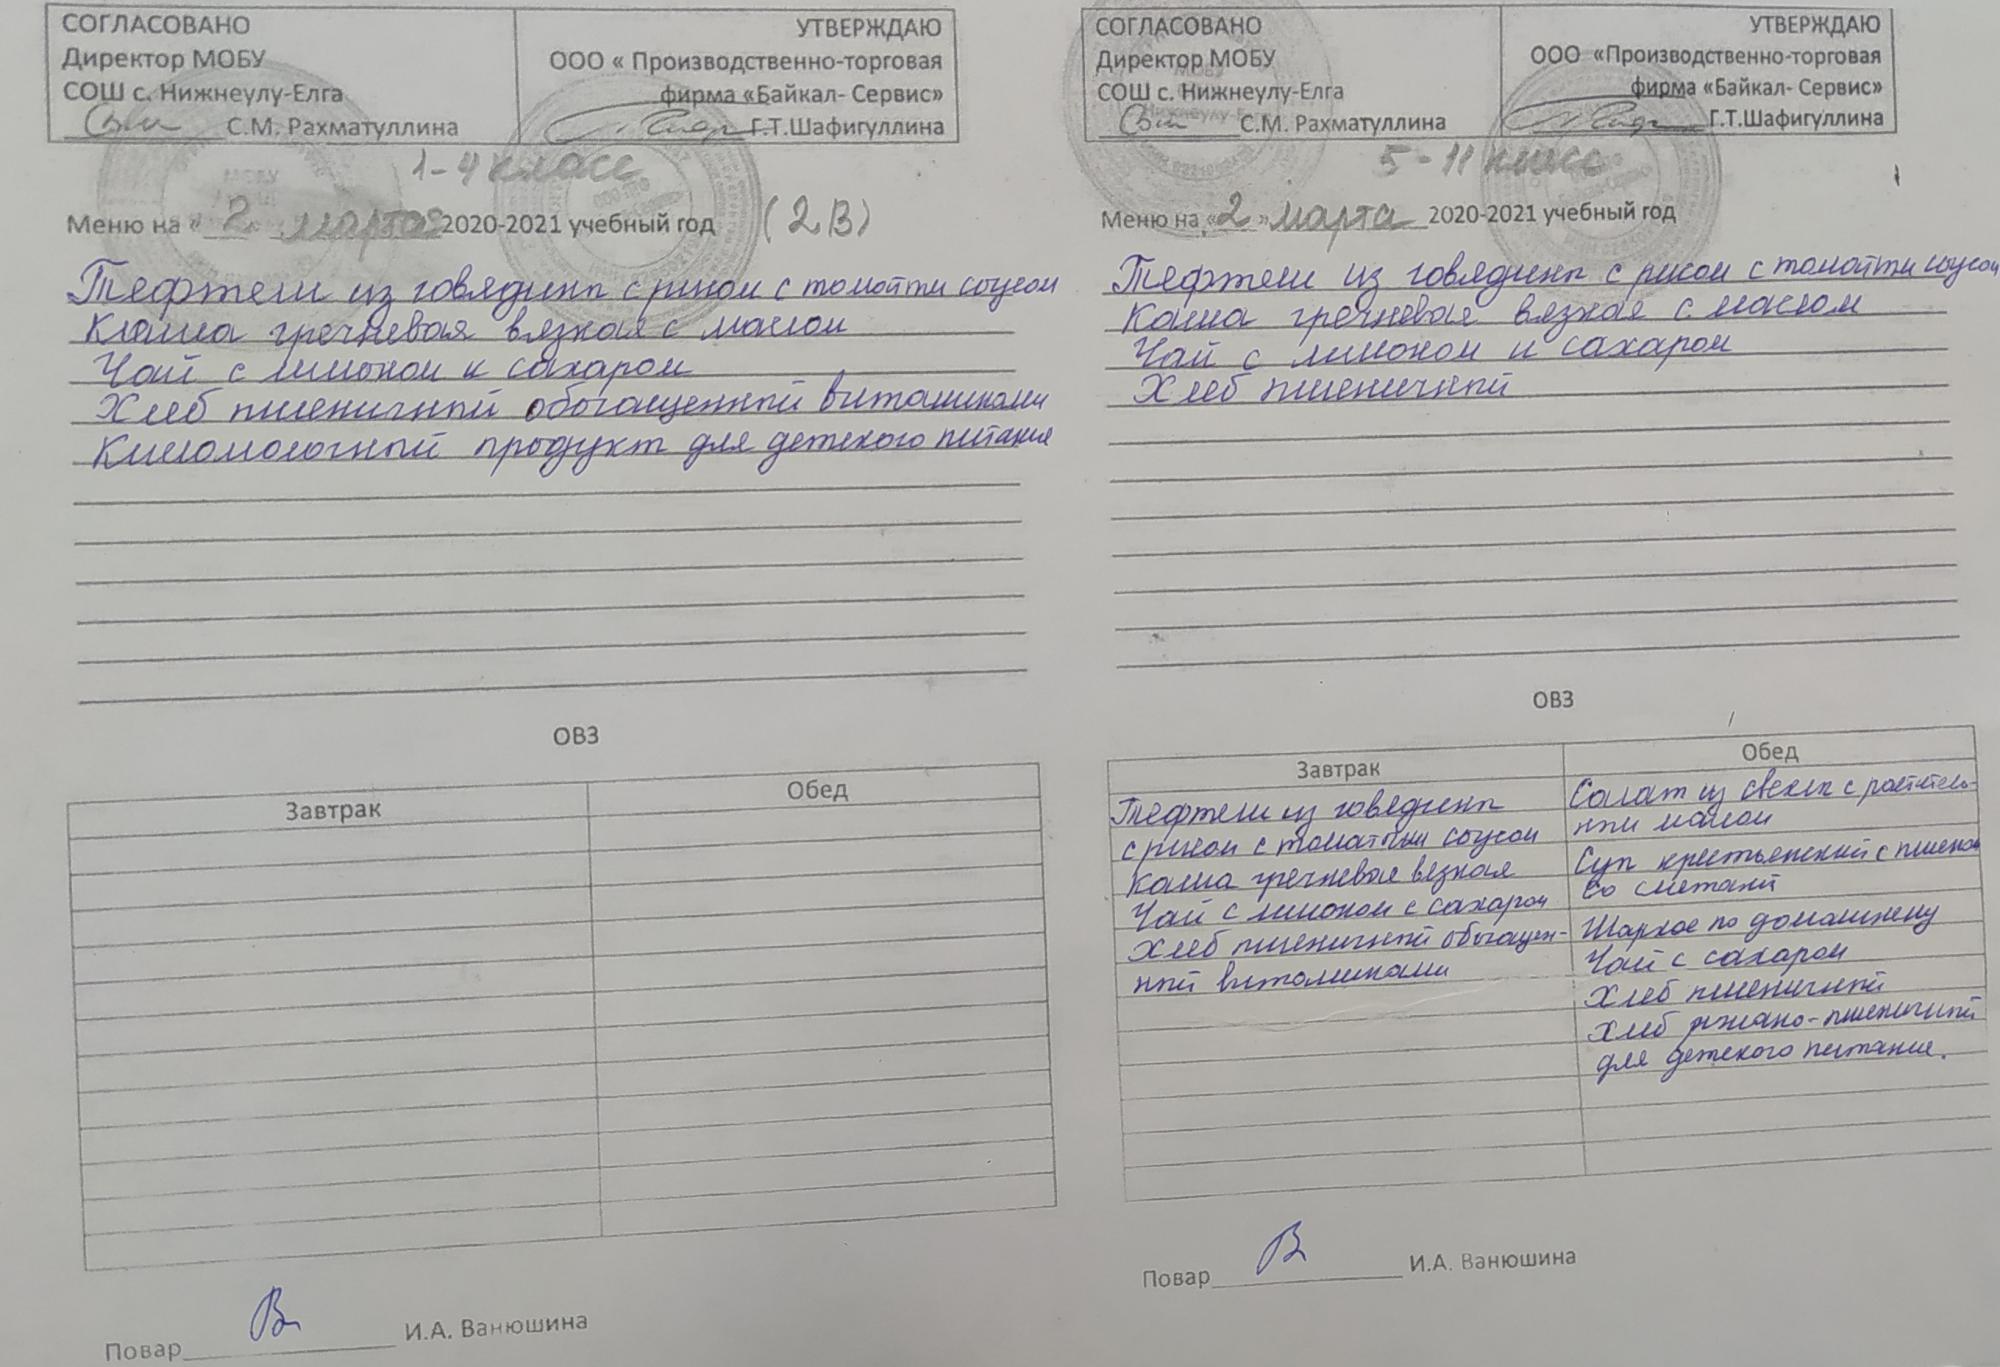 СОГЛАСОВАНО
Директор МОБУ
СОШ с. Нижнеулу-Елга
С.М. Рахматуллина
УТВЕРЖДАЮ
ООО « Производственно-торговая
фирма «Байкал- Сервис»
Г.Т.Шафигуллина
1-4 класс
Меню на « 2 марта 2020-2021 учебный год (2В)
Тефтели из говядины с рисом с томатн соусом
Каша гречневая вязкая с маслом
Чай с лимоном и сахаром
Хлеб пшеничный обогащенный витаминами
Кисломолочный продукт для детского питания
ОВЗ
Завтрак Обед
Повар И.А. Ванюшина
СОГЛАСОВАНО
Директор МОБУ
СОШ с. Нижнеулу-Елга
С.М. Рахматуллина
УТВЕРЖДАЮ
ООО «Производственно-торговая
фирма «Байкал- Сервис»
Г.Т.Шафигуллина
5-11 класс
Меню на «2 » марта 2020-2021 учебный год
Тефтели из говядины с рисом с томатн соусом
Каша гречневая вязкая с маслом
Чай с лимоном и сахаром
Хлеб пшеничный
ОВЗ
Завтрак
Тефтели из говядины
с рисом с томатным соусом
Каша гречневая вязкая
Чай с лимоном с сахаром
Хлеб пшеничный обогащен-
ный витаминами
Обед
Салат из свеклы с раститель-
ным маслом
Суп крестьянский с пшеном
со сметаной
Жаркое по домашнему
Чай с сахаром
Хлеб пшеничный
Хлеб ржано-пшеничный
для детского питания.
Повар И.А. Ванюшина